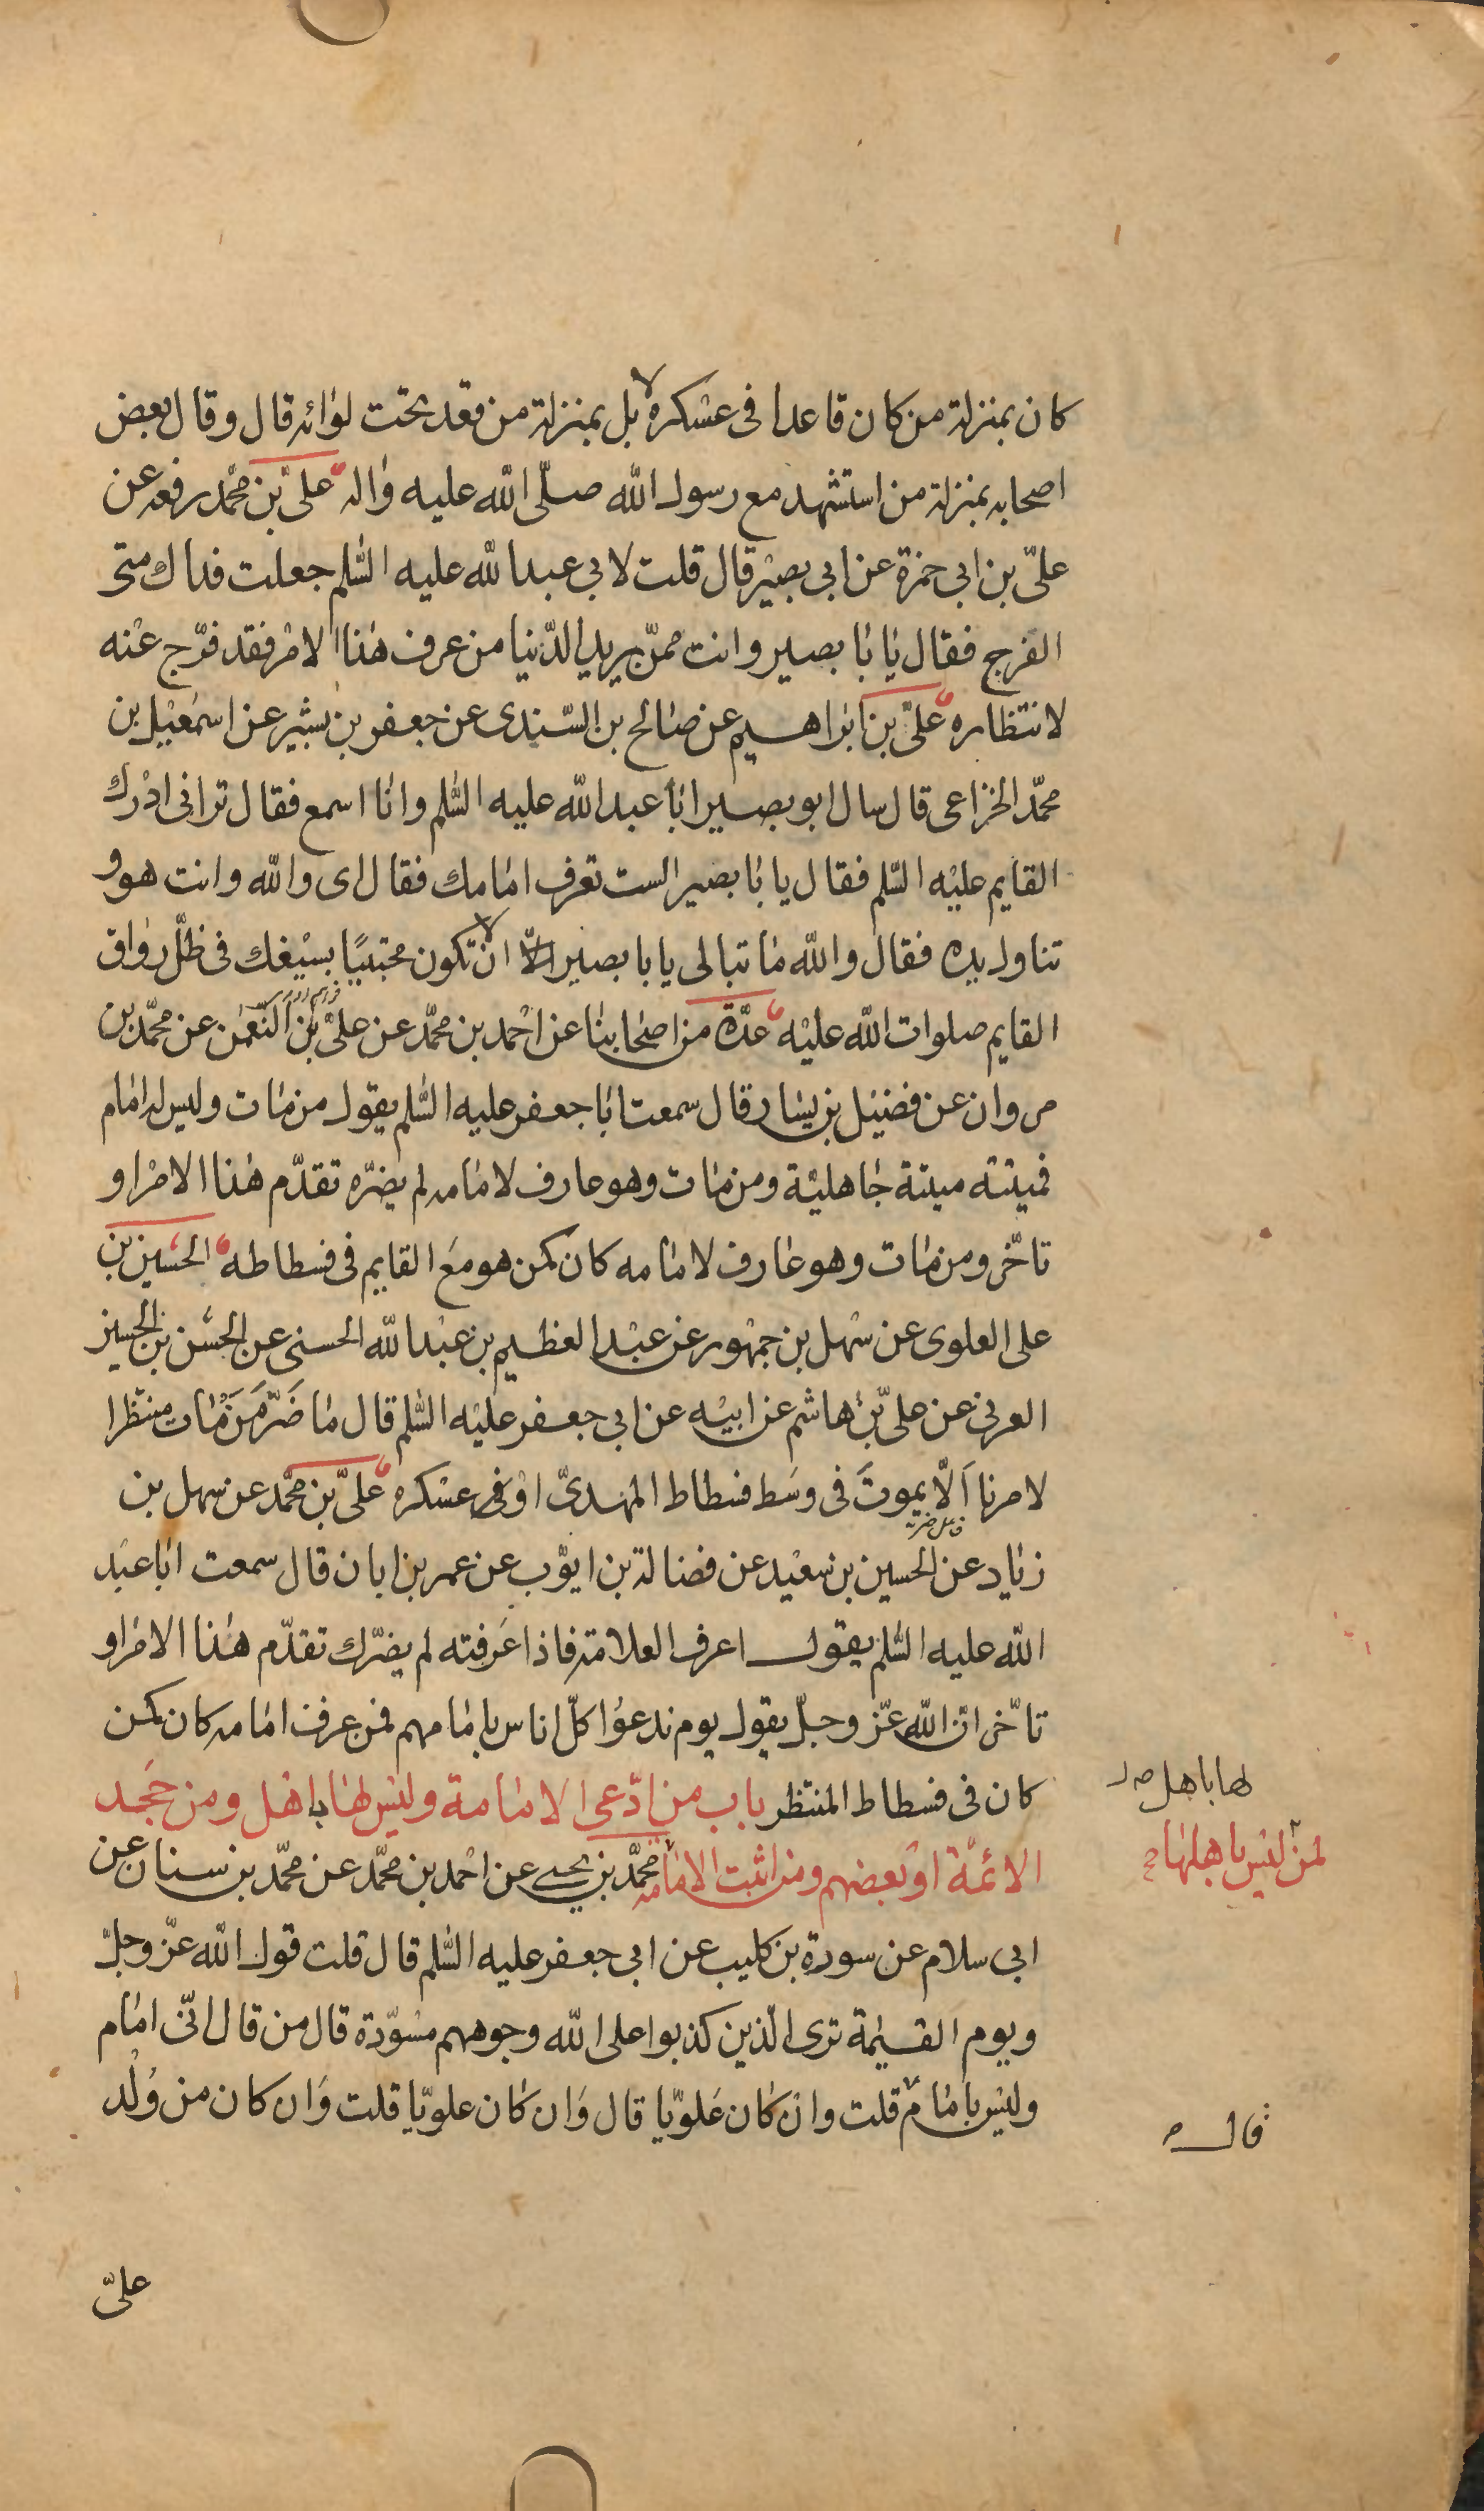 كان بمنزلة من كان قاعدا فى عسكره لا بل بمنزلة من قعد تحت لوائه قال وقال بعض
اصحابه بمنزلة من استشهد مع رسول الله صلّى الله عليه واله علىّ بن محمّد رفعه عن
علىّ بن ابى حمزة عن ابى بصير قال قلت لابى عبد الله عليه السّلم جعلت فداك متى
الفرج فقال يا با بصير وانت ممّن يريد الدّنيا من عرف هذا الامر فقد فرّج عنه
لانتظاره علىّ بن ابراهيم عن صالح بن السّندى عن جعفر بن بشير عن اسمعيل بن
محمّد الخزاعى قال سال ابو بصير ابا عبد الله عليه السّلم وانا اسمع فقال ترانى ادرك
القايم عليه السّلم فقال يا با بصير الست تعرف امامك فقال اى والله وانت هو و
تناول يده فقال والله ما تبالى يا با بصير الّا ان لا تكون محتبيًا بسيفك فى ظلّ رواق
القايم صلوات الله عليه عدّة من اصحابنا عن احمد بن محمّد عن علىّ بن النّعمن عن محمّد بن
مروان عن فضيل بن يسار قال سمعت ابا جعفر عليه السّلم يقول من مات وليس له امام
فميتته ميتة جاهليّة ومن مات وهو عارف لامامه لم يضرّه تقدّم هذا الامر او
تاخّر ومن مات وهو عارف لامامه كان كمن هو مع القايم فى فسطاطه الحسين بن
على العلوى عن سهل بن جمهور عن عبد العظيم بن عبد الله الحسنى عن الحسن بن الحسين
العرنى عن علىّ بن هاشم عن ابيه عن ابى جعفر عليه السّلم قال ما ضَرَّ مَنْ مَات منتظرا
لامرنا اَلّا يموتَ فى وسَط فسطاط المهدىّ اوْ فى عسكره علىّ بن محمّد عن سهل بن
زياد عن الحسين بن سعيد عن فضالة بن ايّوب عن عمر بن ابان قال سمعت ابا عبد
الله عليه السّلم يقول اعرف العلامة فاذا عرفته لم يضرّك تقدّم هذا الامر او
تاخّر انّ الله عزّ وجلّ يقول يوم ندعوا كلّ اناس بامامهم فمن عرف امامه كان كمن
كان فى فسطاط المنتظر باب من ادّعى الامامة وليس لها باهل ومن جَحَد
لها باهل صد
الائمّة او بعضهم ومن اثبت الامامه محمّد بن يحيى عن احمد بن محمّد عن محمّد بن سنان عن
لمن ليس باهلها
ابى سلام عن سورة بن كليب عن ابى جعفر عليه السّلم قال قلت قول الله عزّ وجلّ
ويوم القيٰمة ترى الّذين كذبوا على الله وجوههم مسْوّدة قال من قال انّى امام
وليس بامام قلت وان كان علويّا قال وَان كان علويّا قلت وَان كان من وُلْد
قال
علىّ